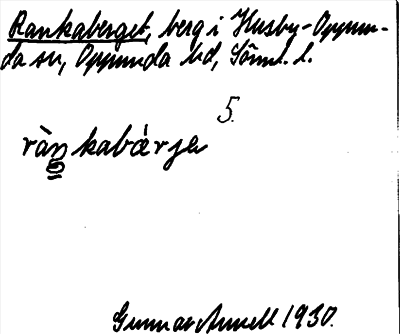 Rankaberget, berg i Husby-Oppun-
da sn, Oppunda hd, Sörml. l.
5.
rànkabárja
Gunnar 1930.